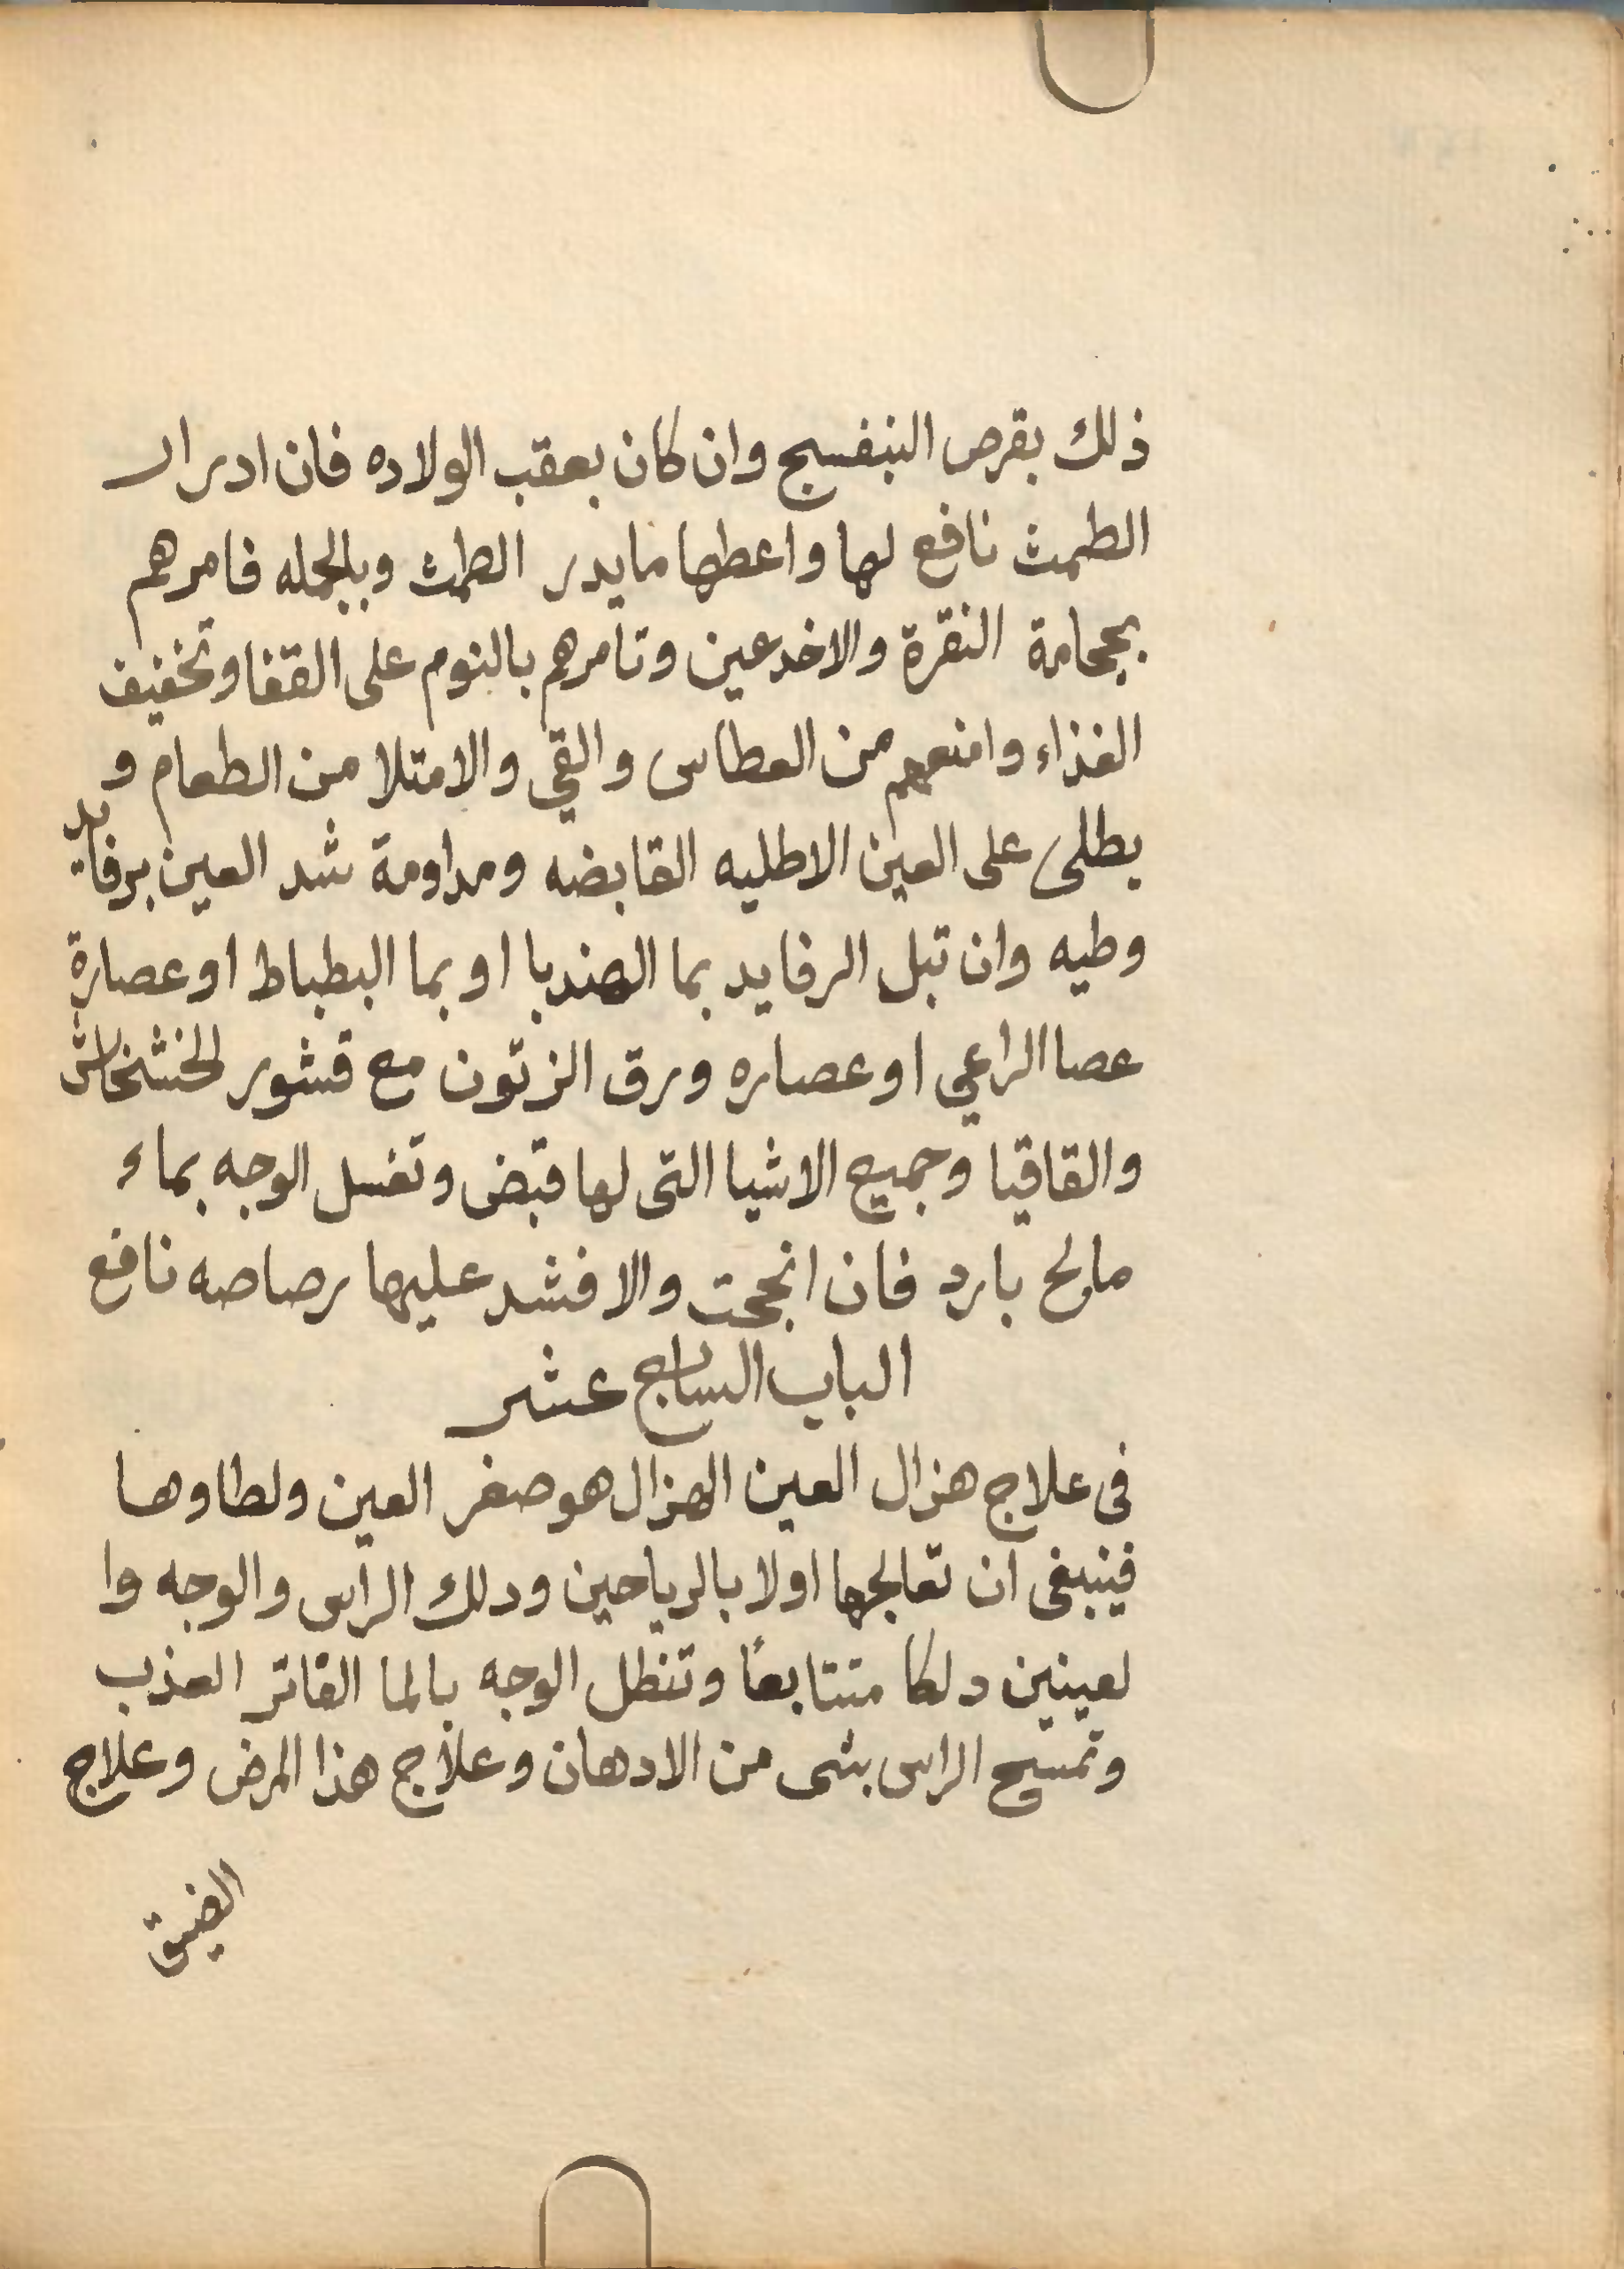 ذلك بقرص البنفسج وان كان بعقب الولاده فان ادرار
الطمث نافع لها واعطها ما يدر الطمث وبالجمله فامرهم
بحجامة النقرة والاخدعين وتامرهم بالنوم على القفا وتخفيف
الغذاء وامنعهم من العطاس والقي والامتلا من الطعام و
يطلى على العين الاطليه القابضه ومداومة شد العين برفايد
وطيه وان تبل الرفايد بما الهندبا او بما البطباط او عصارة
عصا الراعي او عصاره ورق الزتون مع قشور الخشخاش
والقاقيا وجميع الاشيا التى لها قبض وتغسل الوجه بماء
مالح بارد فان انجحت والا فشد عليها رصاصه نافع
الباب السابع عشر
فى علاج هزال العين الهزال هو صغر العين ولطاوها
فينبغى ان تعالجها اولا بالرياحين ودلك الراس والوجه وا
لعينين دلكا متتابعًا وتنطل الوجه بالما الفاتر العذب
وتمسح الراس بشى من الادهان وعلاج هذا المرض وعلاج
الضيق